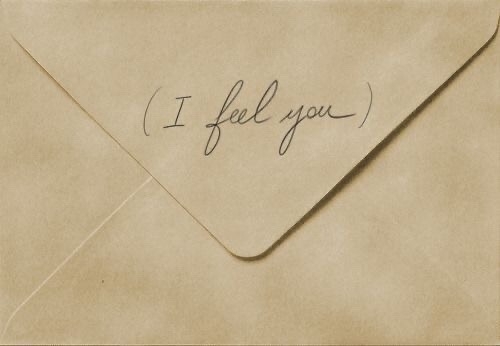 (I feel you)